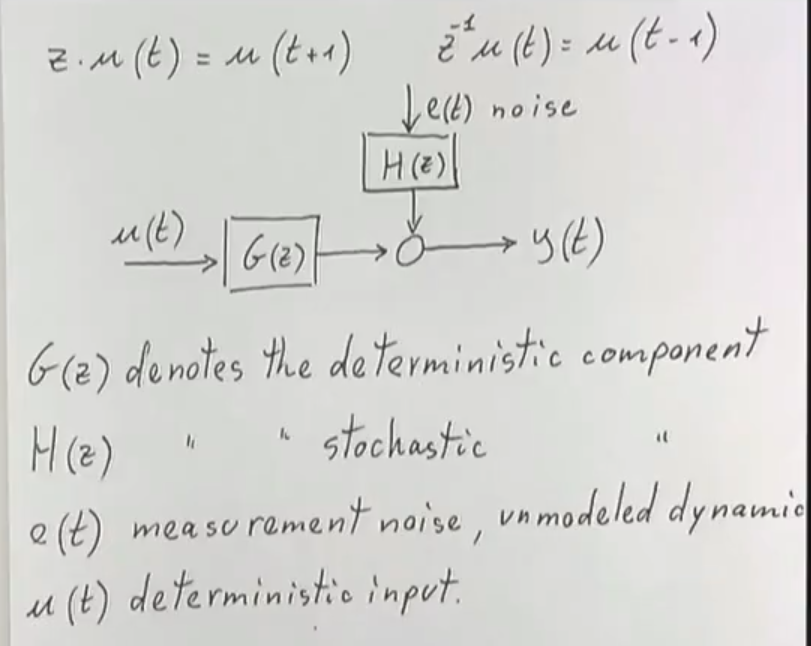 z·u(t) = u(t+1)   z⁻¹u(t) = u(t-1)
e(t) noise
H(z)
u(t)
G(z)
y(t)
G(z) denotes the deterministic component
H(z) " " stochastic "
e(t) measurement noise, unmodeled dynamic
u(t) deterministic input.